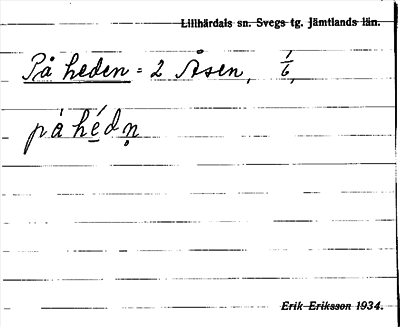 Lillhärdals sn. Svegs tg. Jämtlands län.
På heden = 2 Åsen, 1/6,
på hé̲dn̥
Erik Eriksson 1934.